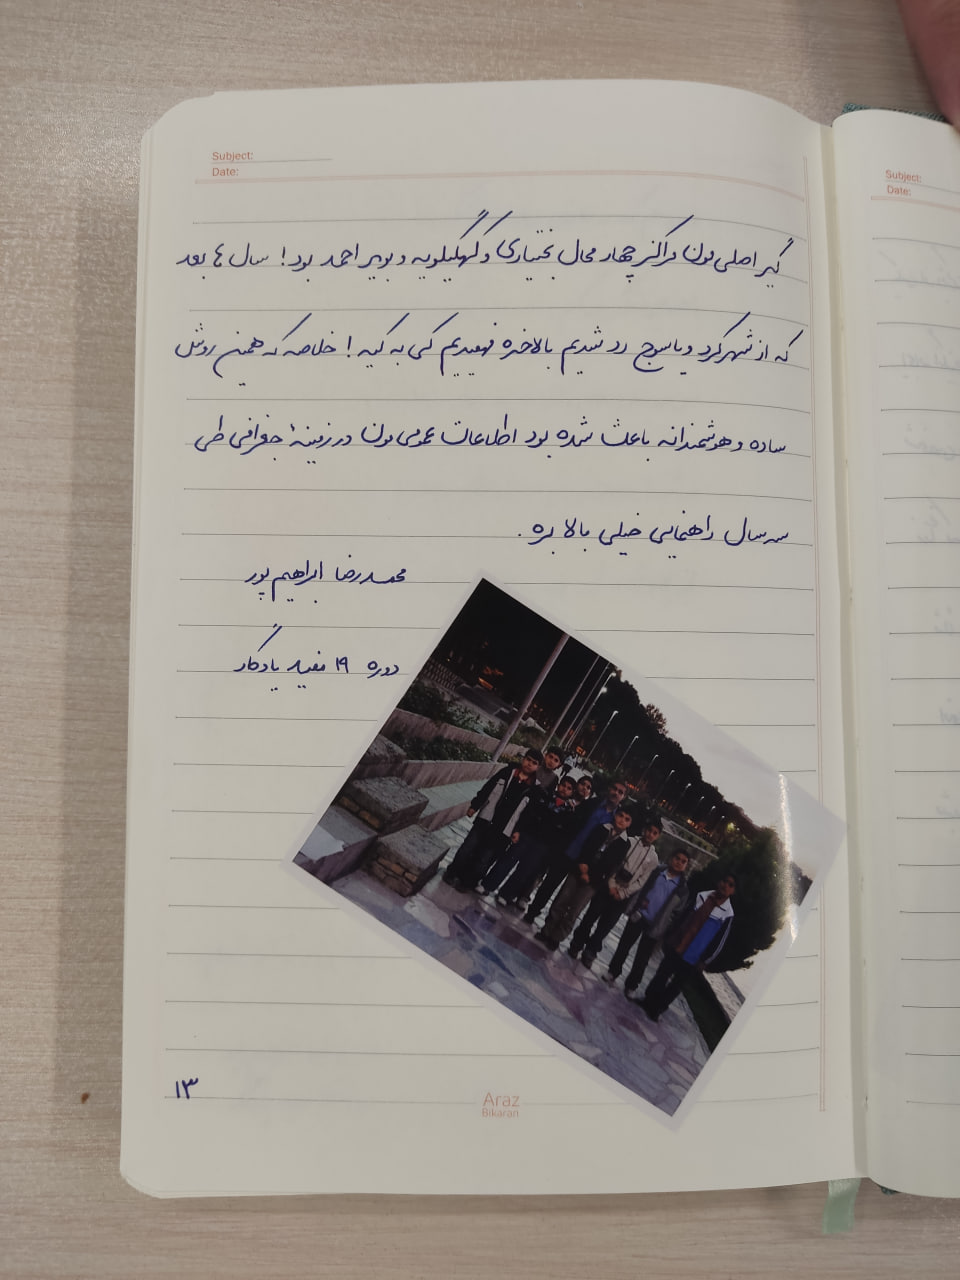 Subject:
Date:
گیر اصلی مون مراکز چهار محال بختیاری و کهگیلویه و بویر احمد بود! سال ٤ بعد
که از شهرکرد و یاسوج رد شدیم بالاخره فهمیدیم کی به کیه! خلاصه که همین روش
ساده و هوشمندانه باعث شده بود اطلاعات عمومی مون در زمینهٔ جغرافی طی
سه سال راهنمایی خیلی بالا بره.
محمدرضا ابراهیم پور
دوره ۱۹ مفید یادگار
۱۳
Araz
Bikaran
Subject:
Date: